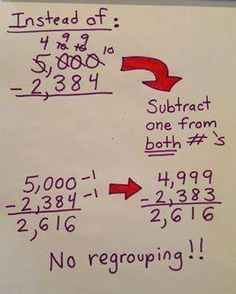 Instead of:
4 9 9
10 10 10
5,000
- 2,384
Subtract
one from
both #'s
5,000 -1
- 2,384 -1
2,616
4,999
- 2,383
2,616
No regrouping!!